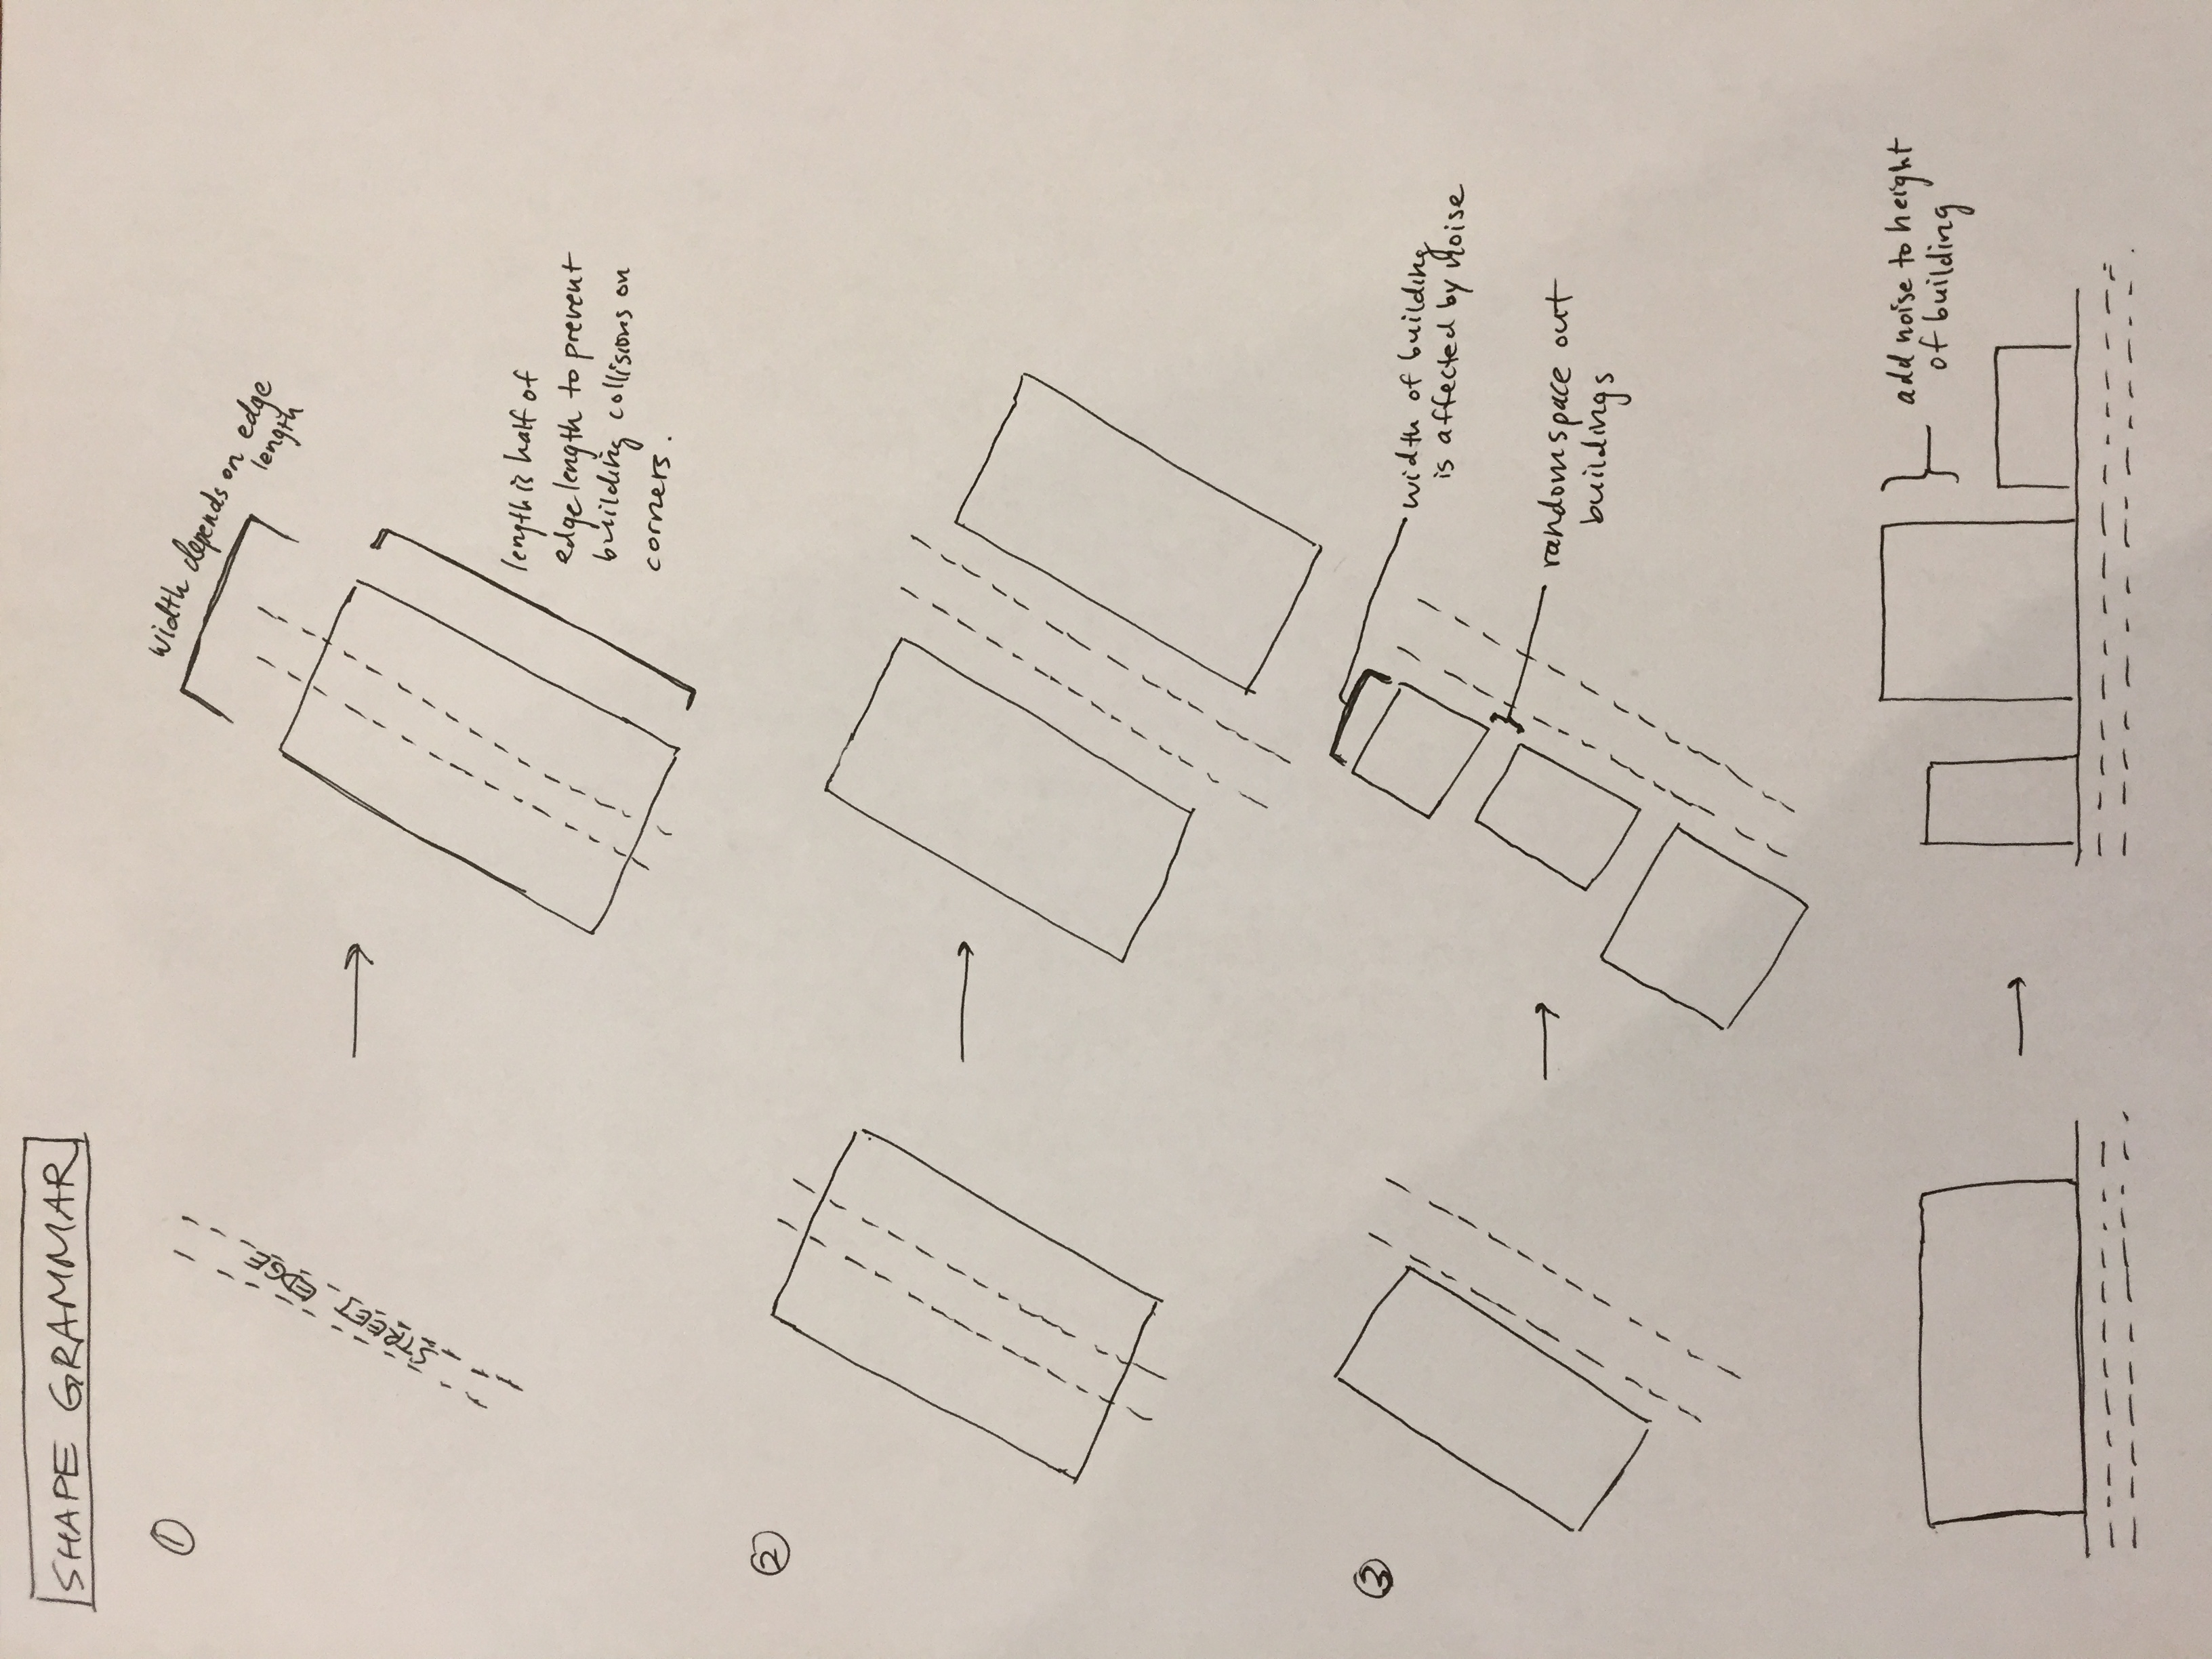 SHAPE GRAMMAR
1
STREET EDGE
width depends on edge
length
length is half of
edge length to prevent
building collisions on
corners.
2
3
width of building
is affected by noise
random space out
buildings
add noise to height
of building